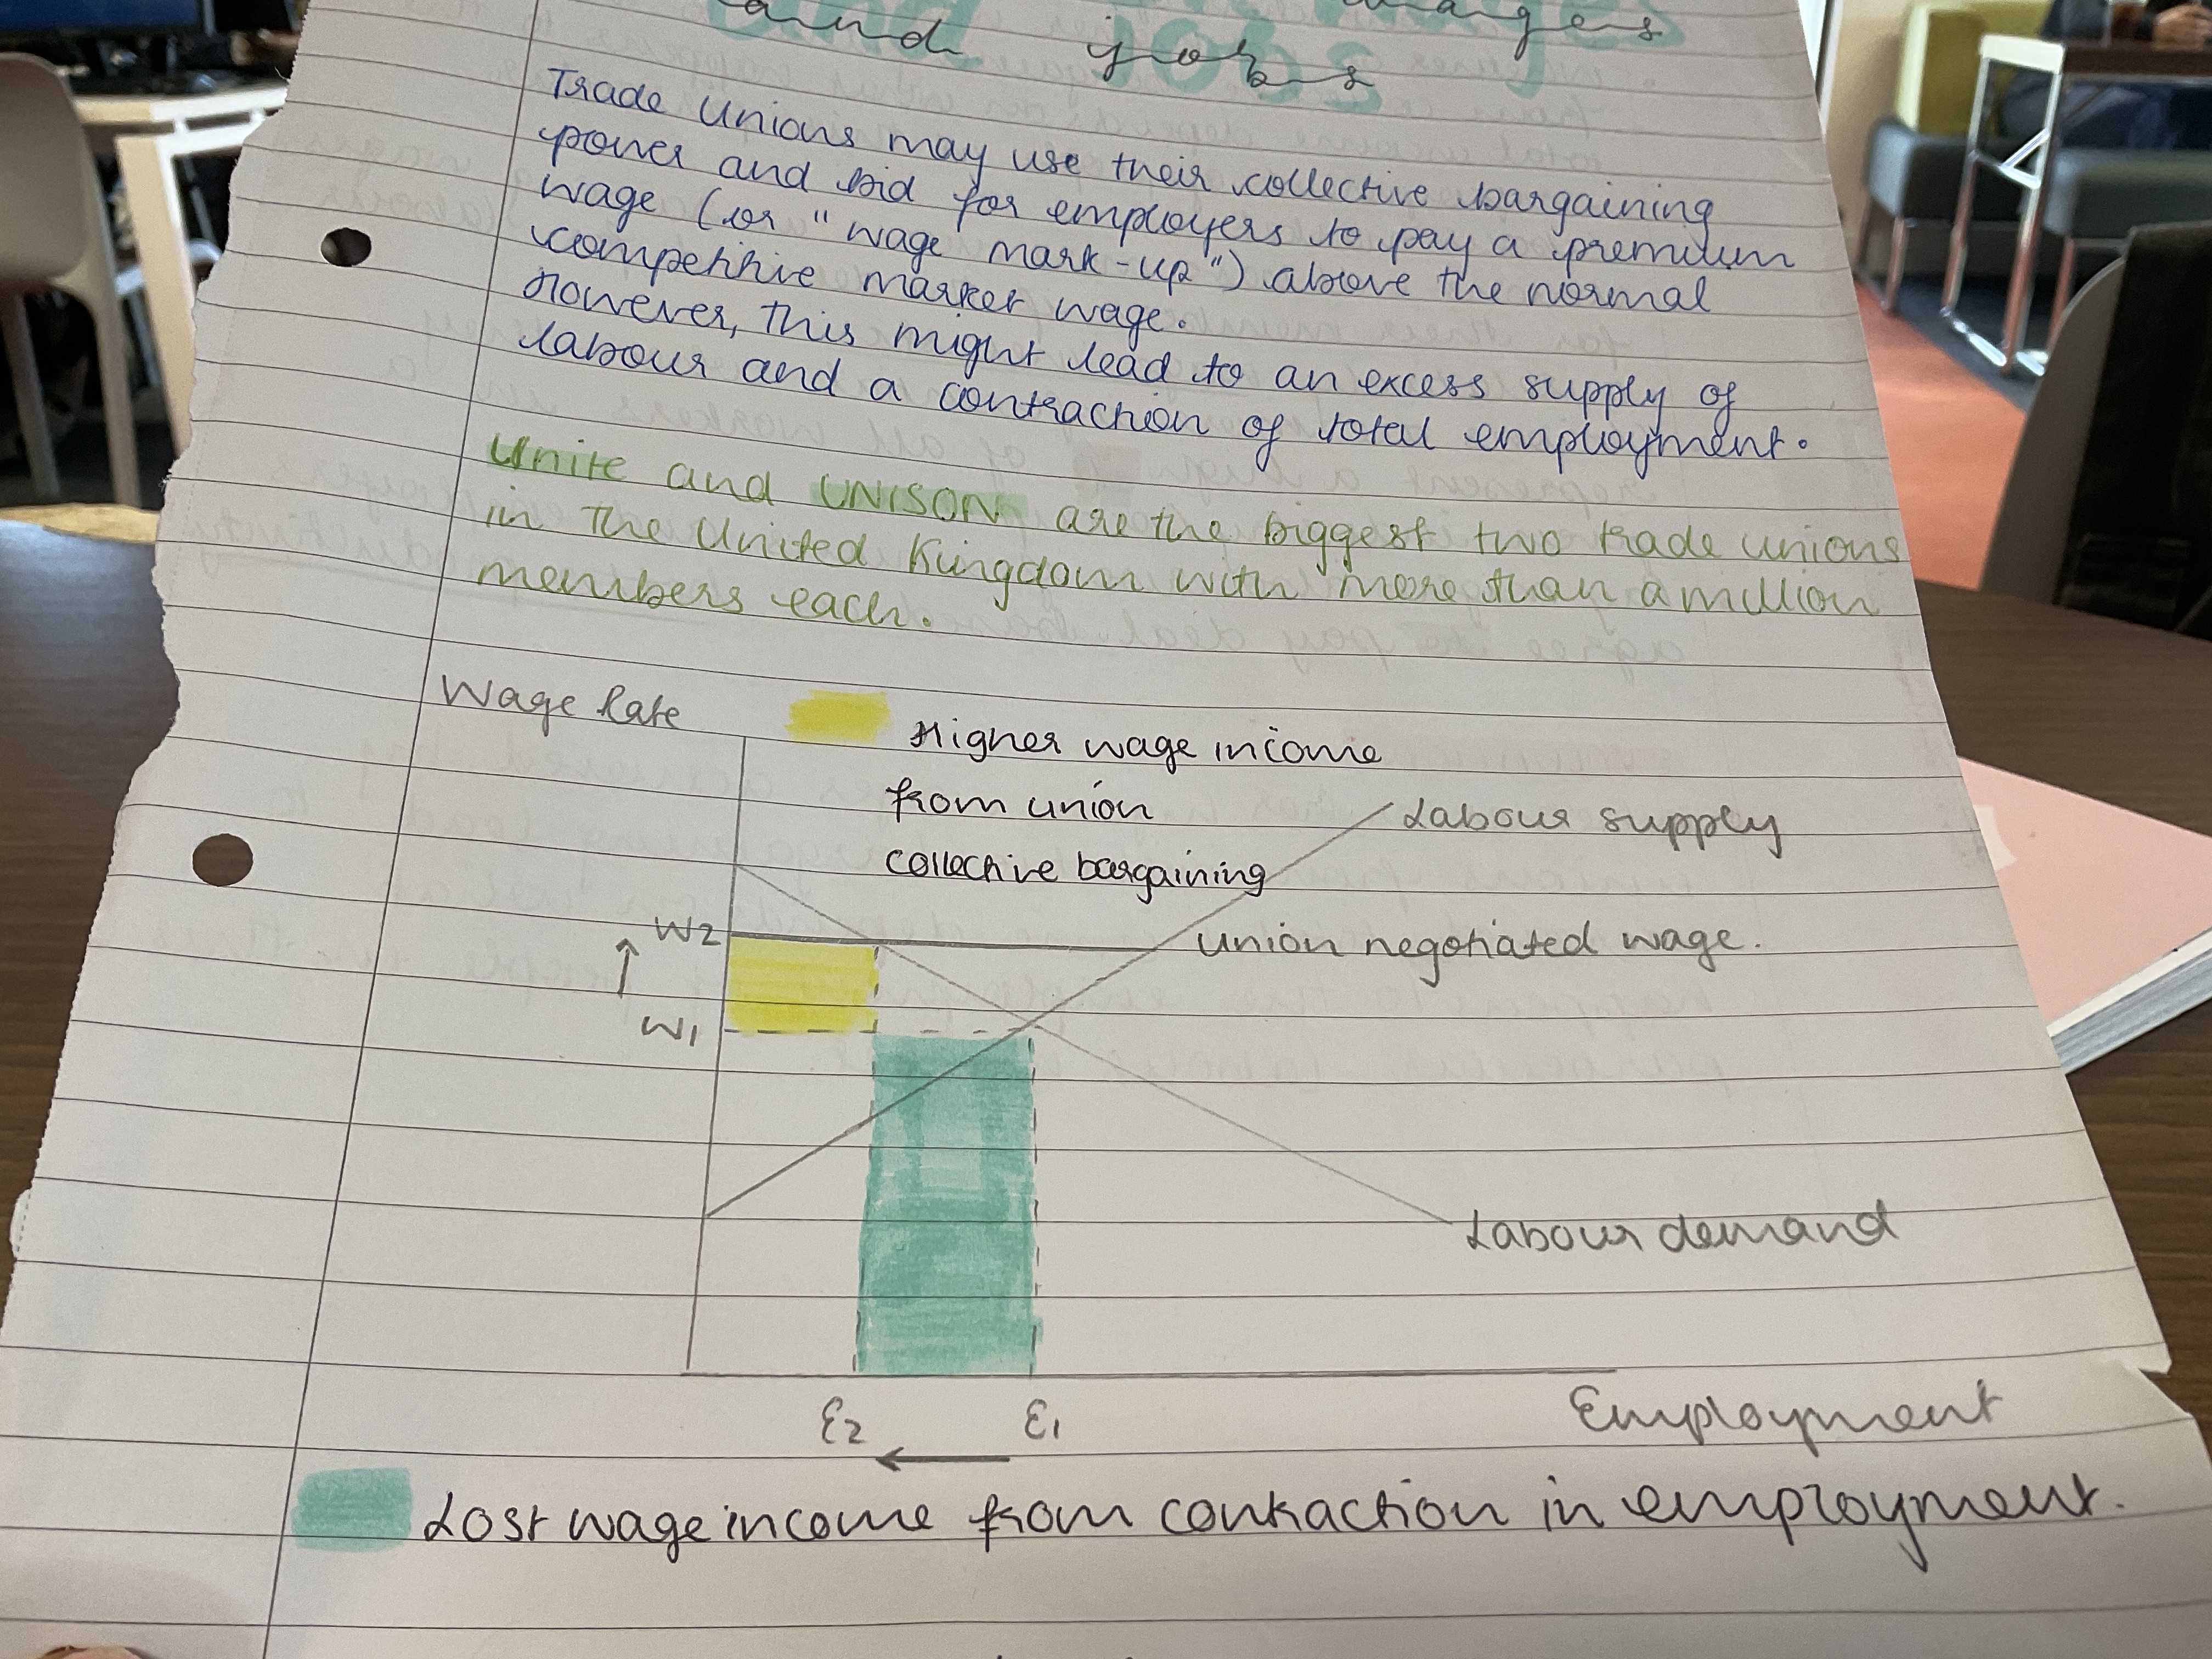 and jobs
Trade Unions may use their collective bargaining
power and bid for employers to pay a premium
wage (or "wage mark-up") above the normal
competitive market wage.
However, this might lead to an excess supply of
labour and a contraction of total employment.
Unite and UNISON are the biggest two trade unions
in the United Kingdom with more than a million
members each.
Wage Rate
Higher wage income
from union
collective bargaining
Labour supply
W2
union negotiated wage.
W1
Labour demand
E2
E1
Employment
Lost wage income from contraction in employment.